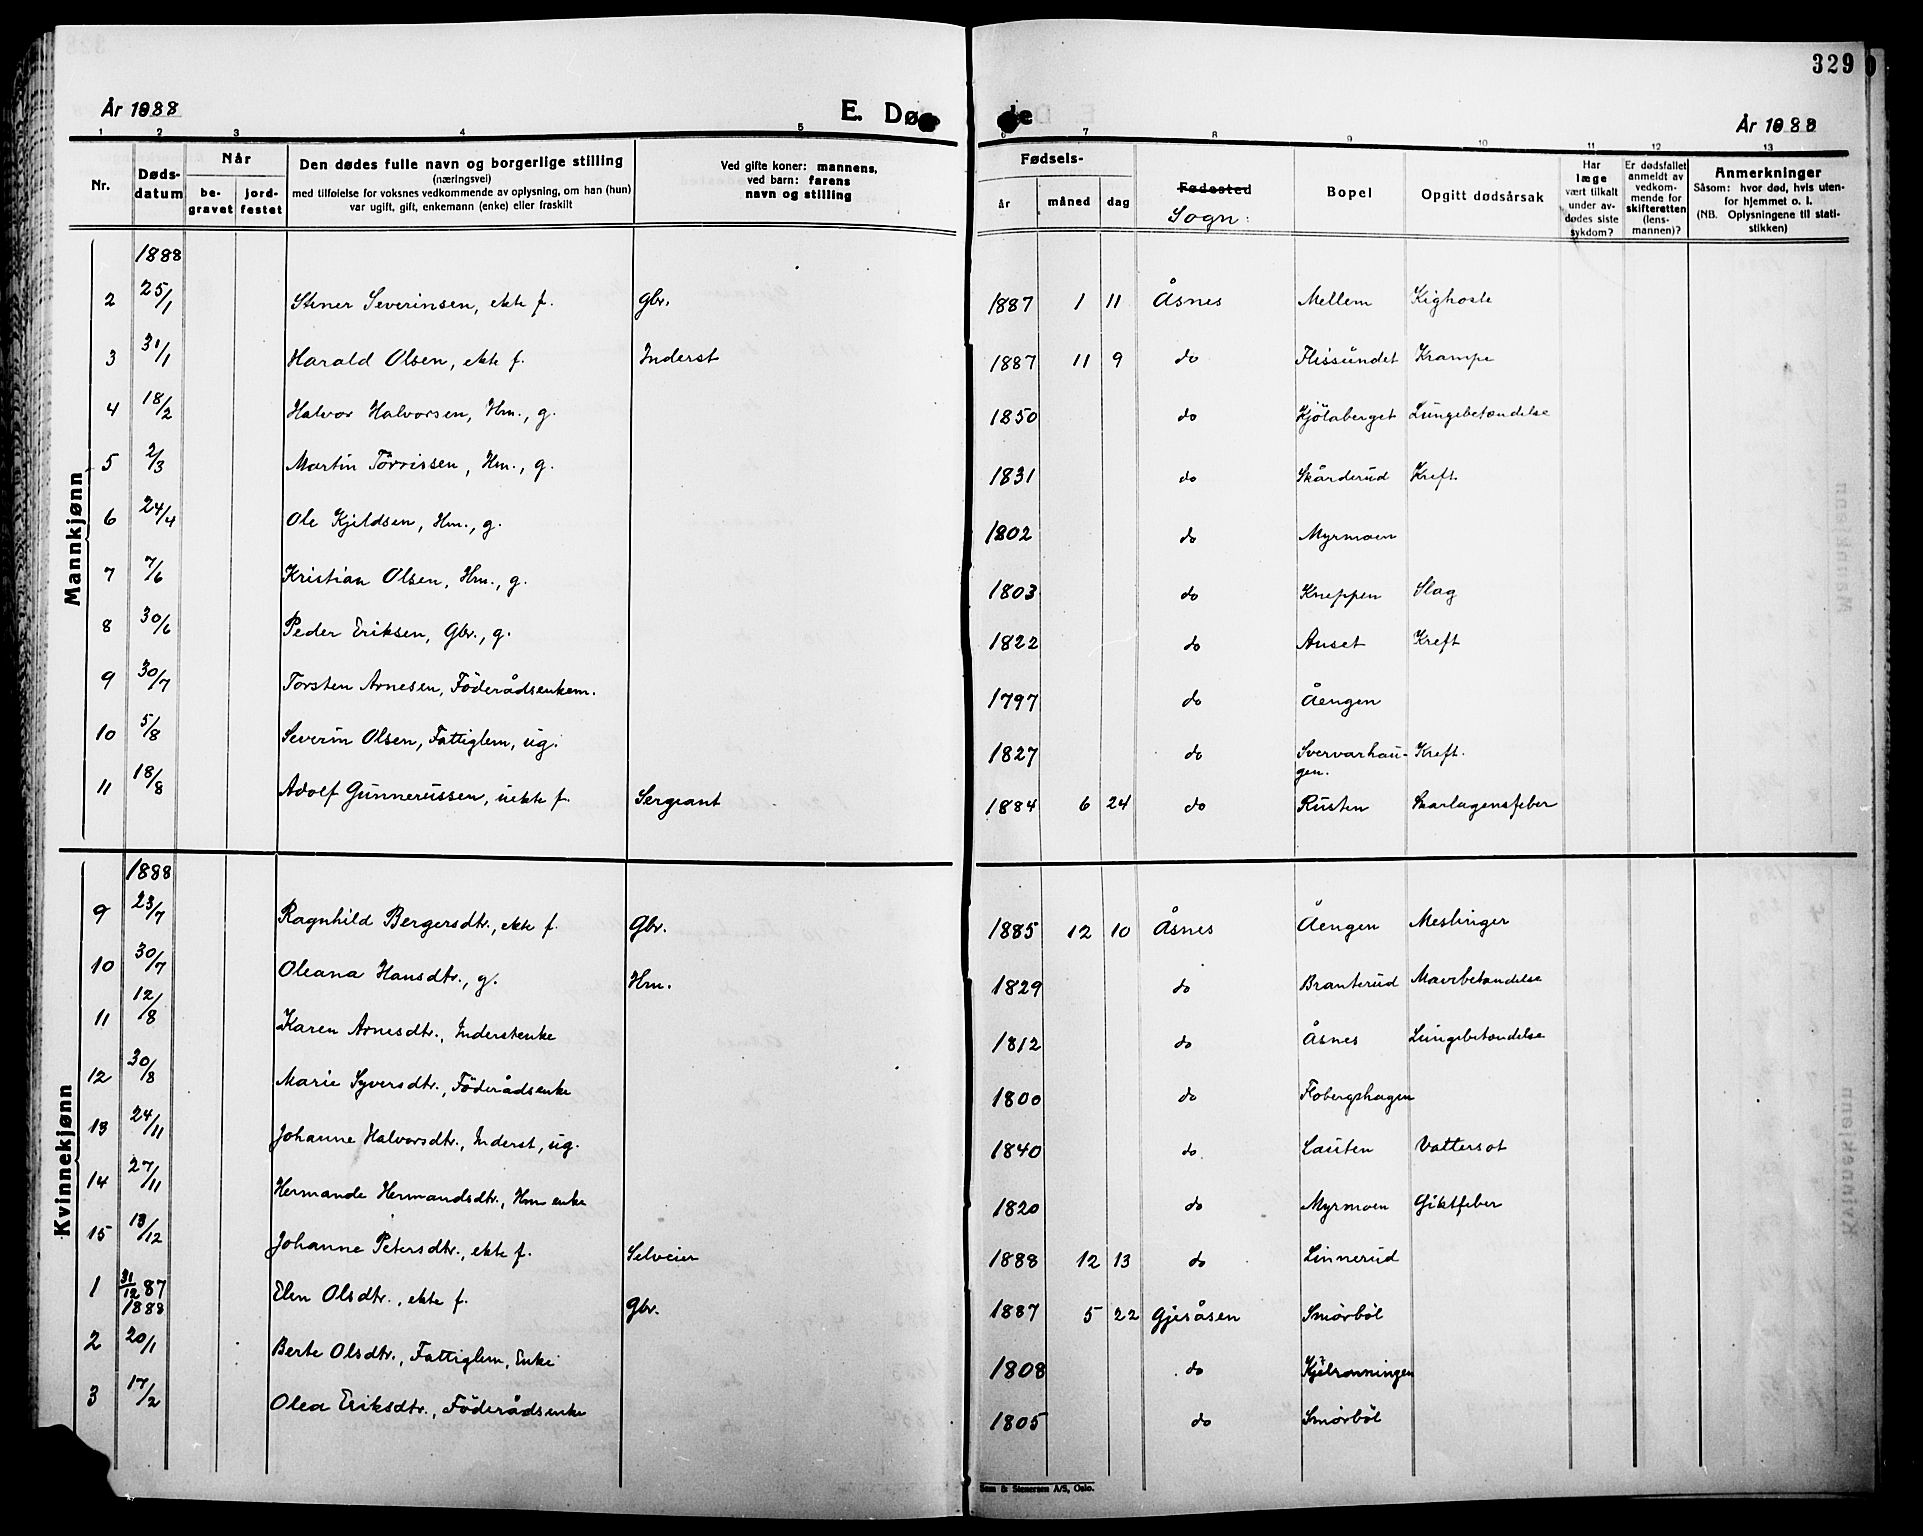 329
År 1888
E. Dø de
År 1888
1 2 3 4 5 6 7 8 9 10 11 12 13
Nr.
Døds-
datum
Når
be-
gravet
jord-
festet
Den dødes fulle navn og borgerlige stilling
(næringsvei)
med tilføielse for voksnes vedkommende av oplysning, om han (hun)
var ugift, gift, enkemann (enke) eller fraskilt
Ved gifte koner: mannens,
ved barn: farens
navn og stilling
Fødsels-
år måned dag
Fødested
Sogn:
Bopel
Opgitt dødsårsak
Har
læge
vært tilkalt
under av-
dødes siste
sykdom?
Er dødsfallet
anmeldt av
vedkom-
mende for
skifteretten
(lens-
mannen)?
Anmerkninger
Såsom: hvor død, hvis uten-
for hjemmet o. l.
(NB. Oplysningene til stati-
stikken)
Mannkjønn
1888
2 25/1 Stener Severinsen, ekte f. gbr. 1887 1 11 Åsnes Mellem Kighoste
3 31/1 Harald Olsen, ekte f. Inderst 1887 11 9 do Flissundet Krampe
4 18/2 Halvor Halvorsen, Hm., g. 1850 do Kjölaberget Lungebetændelse
5 2/3 Martin Törrissen, Hm., g. 1831 do Skårderud Kreft.
6 24/4 Ole Kjeldsen, Hm., g. 1802 do Myrmoen
7 7/6 Kristian Olsen, Hm., g. 1803 do Kneppen Slag
8 30/6 Peder Eriksen, Gbr., g. 1822 do Auset Kreft
9 30/7 Torsten Arnesen, Föderådsenkem. 1797 do Åengen
10 5/8 Severin Olsen, Fattiglem, ug. 1827 do Svervarhau- Kreft.
gen.
11 18/8 Adolf Gunnerussen, uekte f. Sergeant 1884 6 24 do Rusten Skarlagensfeber
Kvinnekjønn
1888
9 23/7 Ragnhild Bergersdtr., ekte f. Gbr. 1885 12 10 Åsnes Åengen Meslinger
10 30/7 Oleana Hansdtr., g. Hm. 1829 do Branterud Mavebetændelse
11 12/8 Karen Arnesdtr., Inderstenke 1812 do Åsnes Lungebetændelse
12 30/8 Marie Syversdtr., Föderådsenke 1800 do Flobergshagen
13 24/11 Johanne Halvorsdtr., Inderst, ug. 1840 do. Lauten Vattersot
14 27/11 Hermande Hermandsdtr., Hm enke 1820 do Myrmoen Giktfeber
15 13/12 Johanne Petersdtr., ekte f. Selveier 1888 12 13 do Linnerud
1 31/12 87 Elen Olsdtr., ekte f. Gbr. 1887 5 22 Gjesåsen Smörböl
1888
2 20/1 Berte Olsdtr., Fattiglem, Enke 1808 do Kjölrønningen
3 17/2 Olea Eriksdtr., Föderådsenke 1805 do Smörböl
Sem & Stenersen A/S, Oslo.